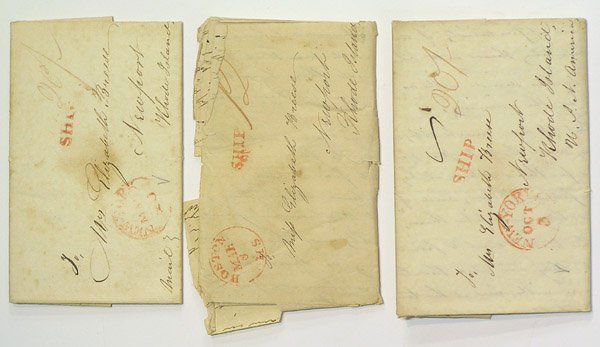 SHIP
To
Miss Elizabeth Breese
Newport
Rhode Island
Mail
SHIP
12
To
Miss Elizabeth Breese
Newport
Rhode Island
BOSTON
MAR
MS
SHIP
20
To
Mrs Elizabeth Breese
Newport
Rhode Island
U. S. America
OCT